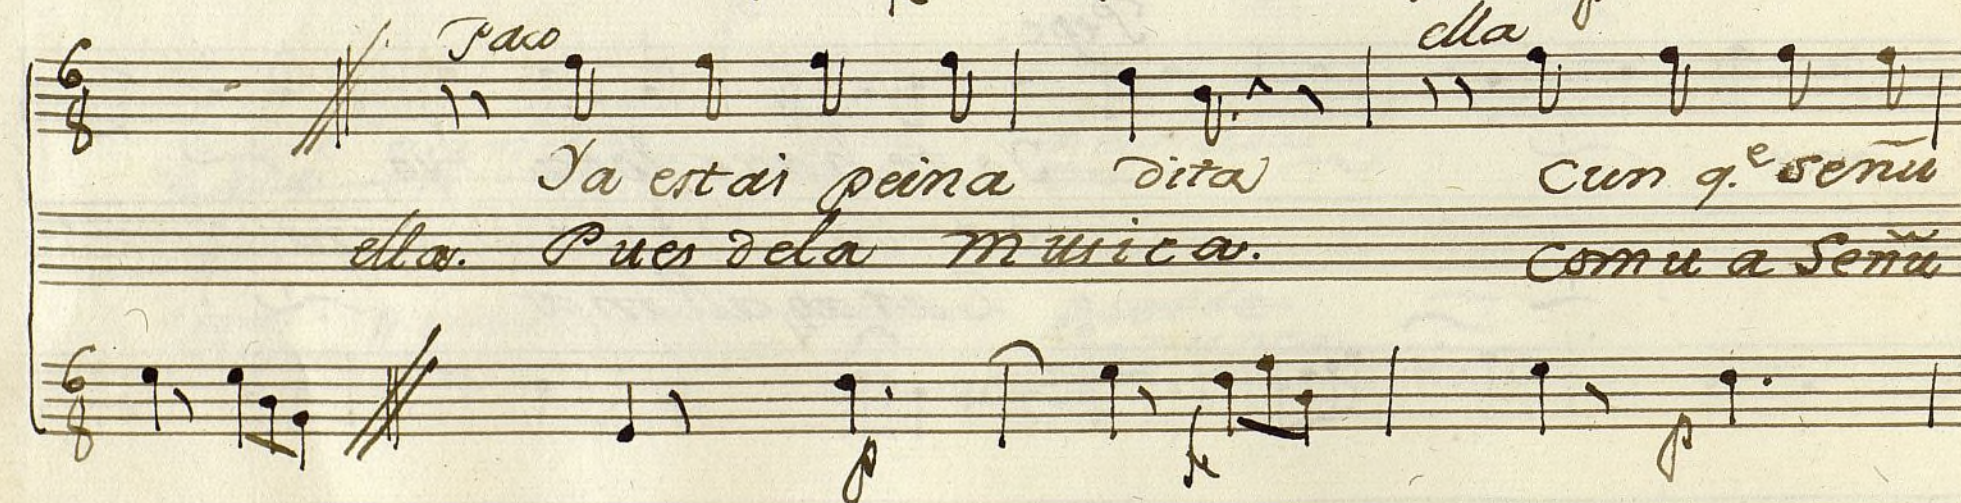 Paco ella
Ya estai peina dita cun q.e señu
ella. Pues dela musica. comu a Señu
p f p